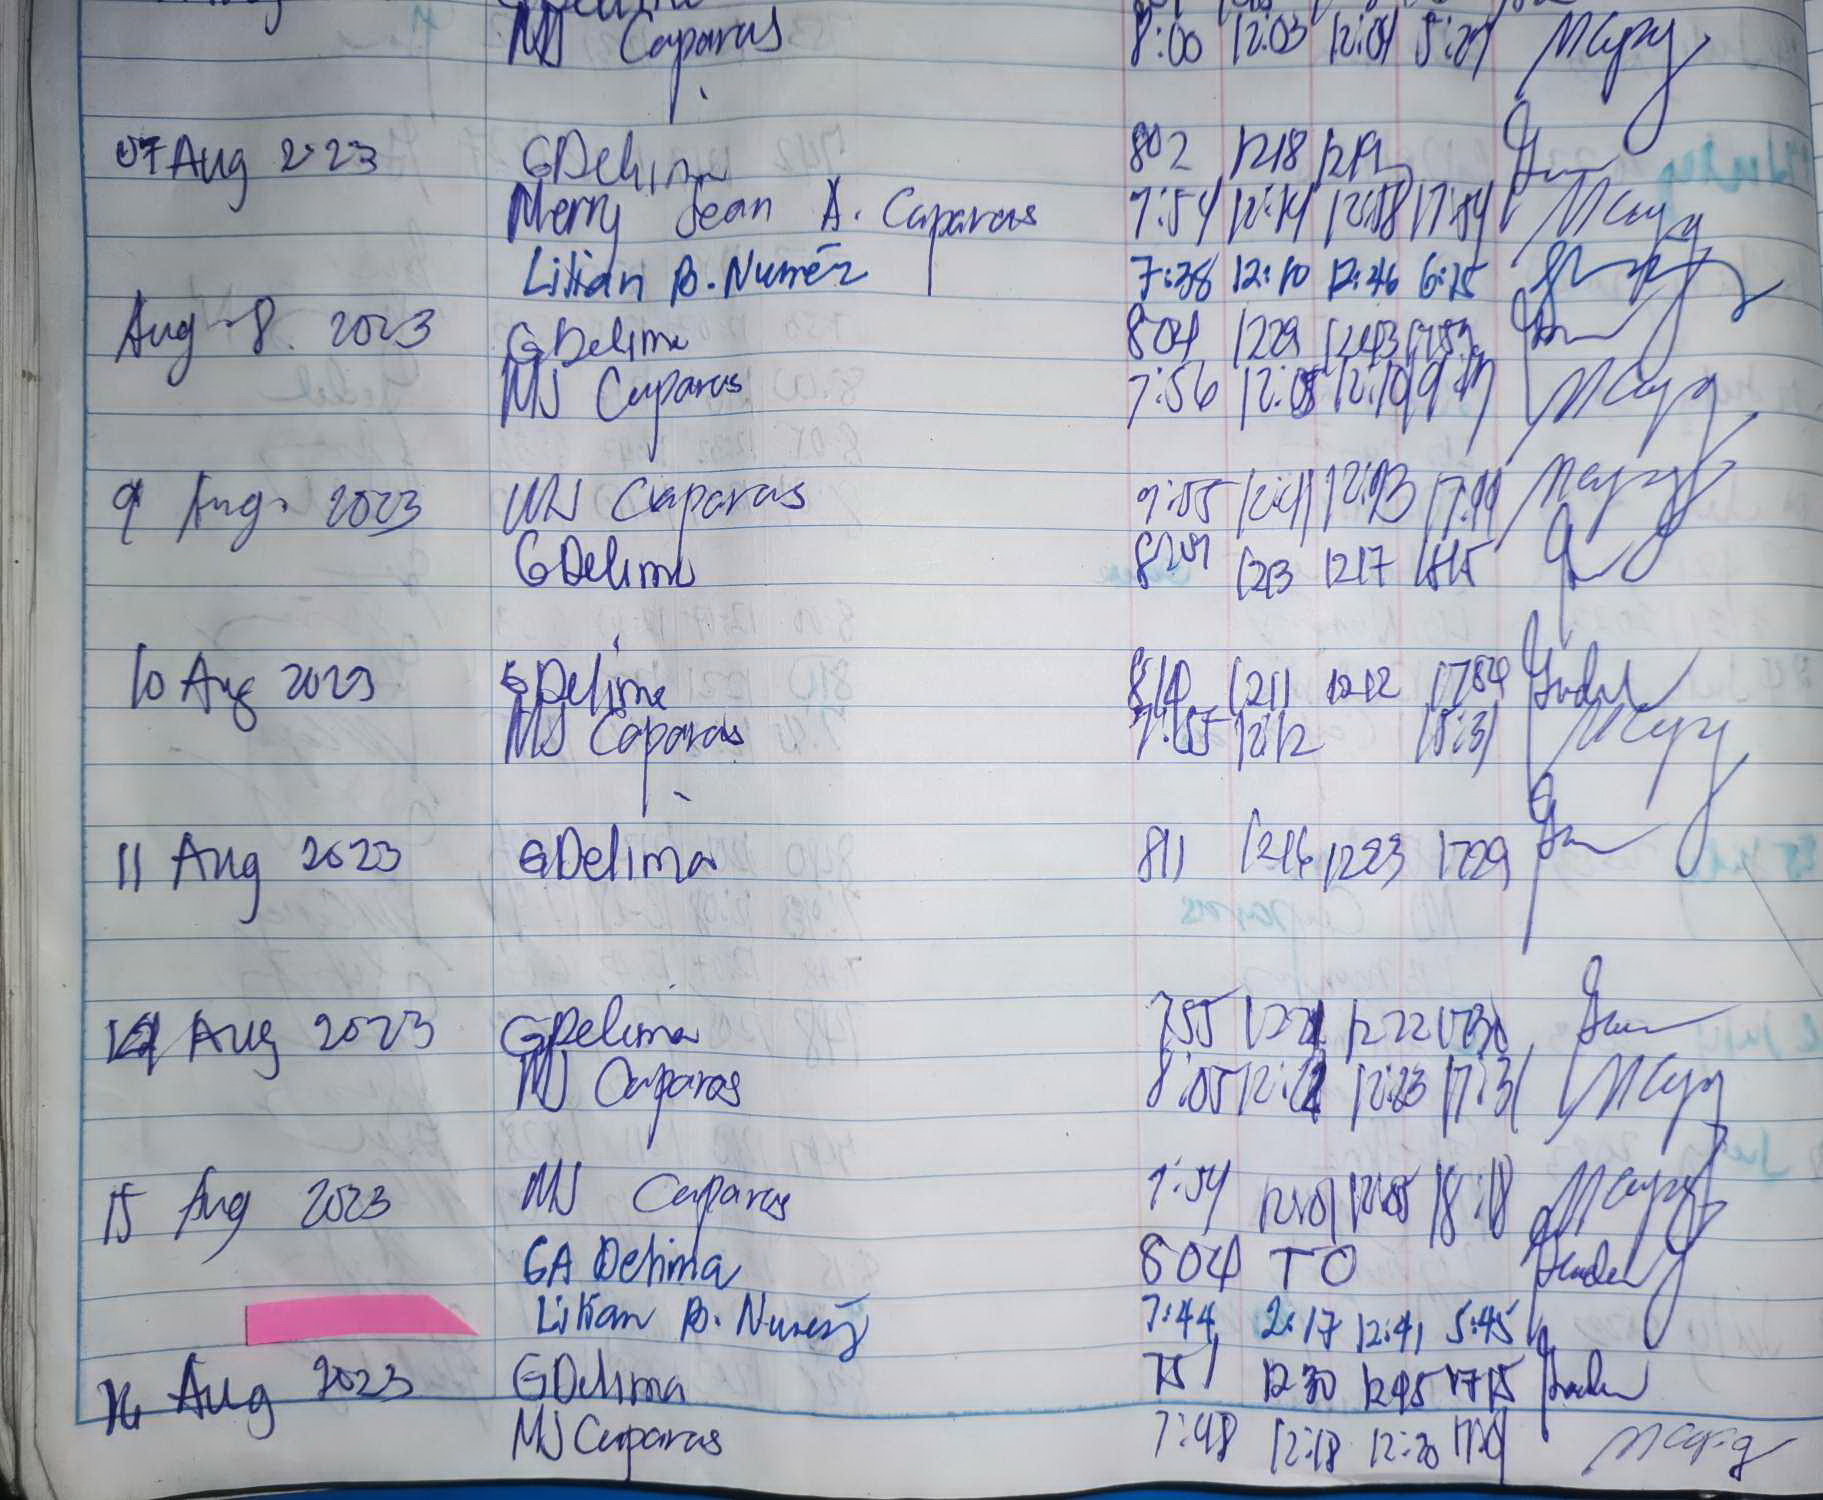 MJ Caparas 8:00 12:03 12:04
07 Aug 2023 GDelima 802 1218 1219
Merry Jean A. Caparas 7:54 12:14 12:58
Lilian B. Nuñez 7:38 12:10 12:46 6:15
Aug 8. 2023 GDelima 804 1229 1243
MJ Caparas 7:56 12:08 12:10
9 Aug. 2023 MJ Caparas 7:55 12:41
GDelima 1213 1217 1815
10 Aug 2023 GDelima 810 1211 1212
MJ Caparas 7:55 12:12 18:31
11 Aug 2023 GDelima 811 1216 1223 1729
Aug 2023 GDelima 755 1221 1222 1730
MJ Caparas 8:05 12:23 17:31
15 Aug 2023 MJ Caparas 7:54 18:18
GA Delima 804 TO
Lilian B. Nuñez 7:44 2:17 12:41 5:45
16 Aug 2023 GDelima 751 1230 1245 1715
MJ Caparas 7:48 12:18 12:20